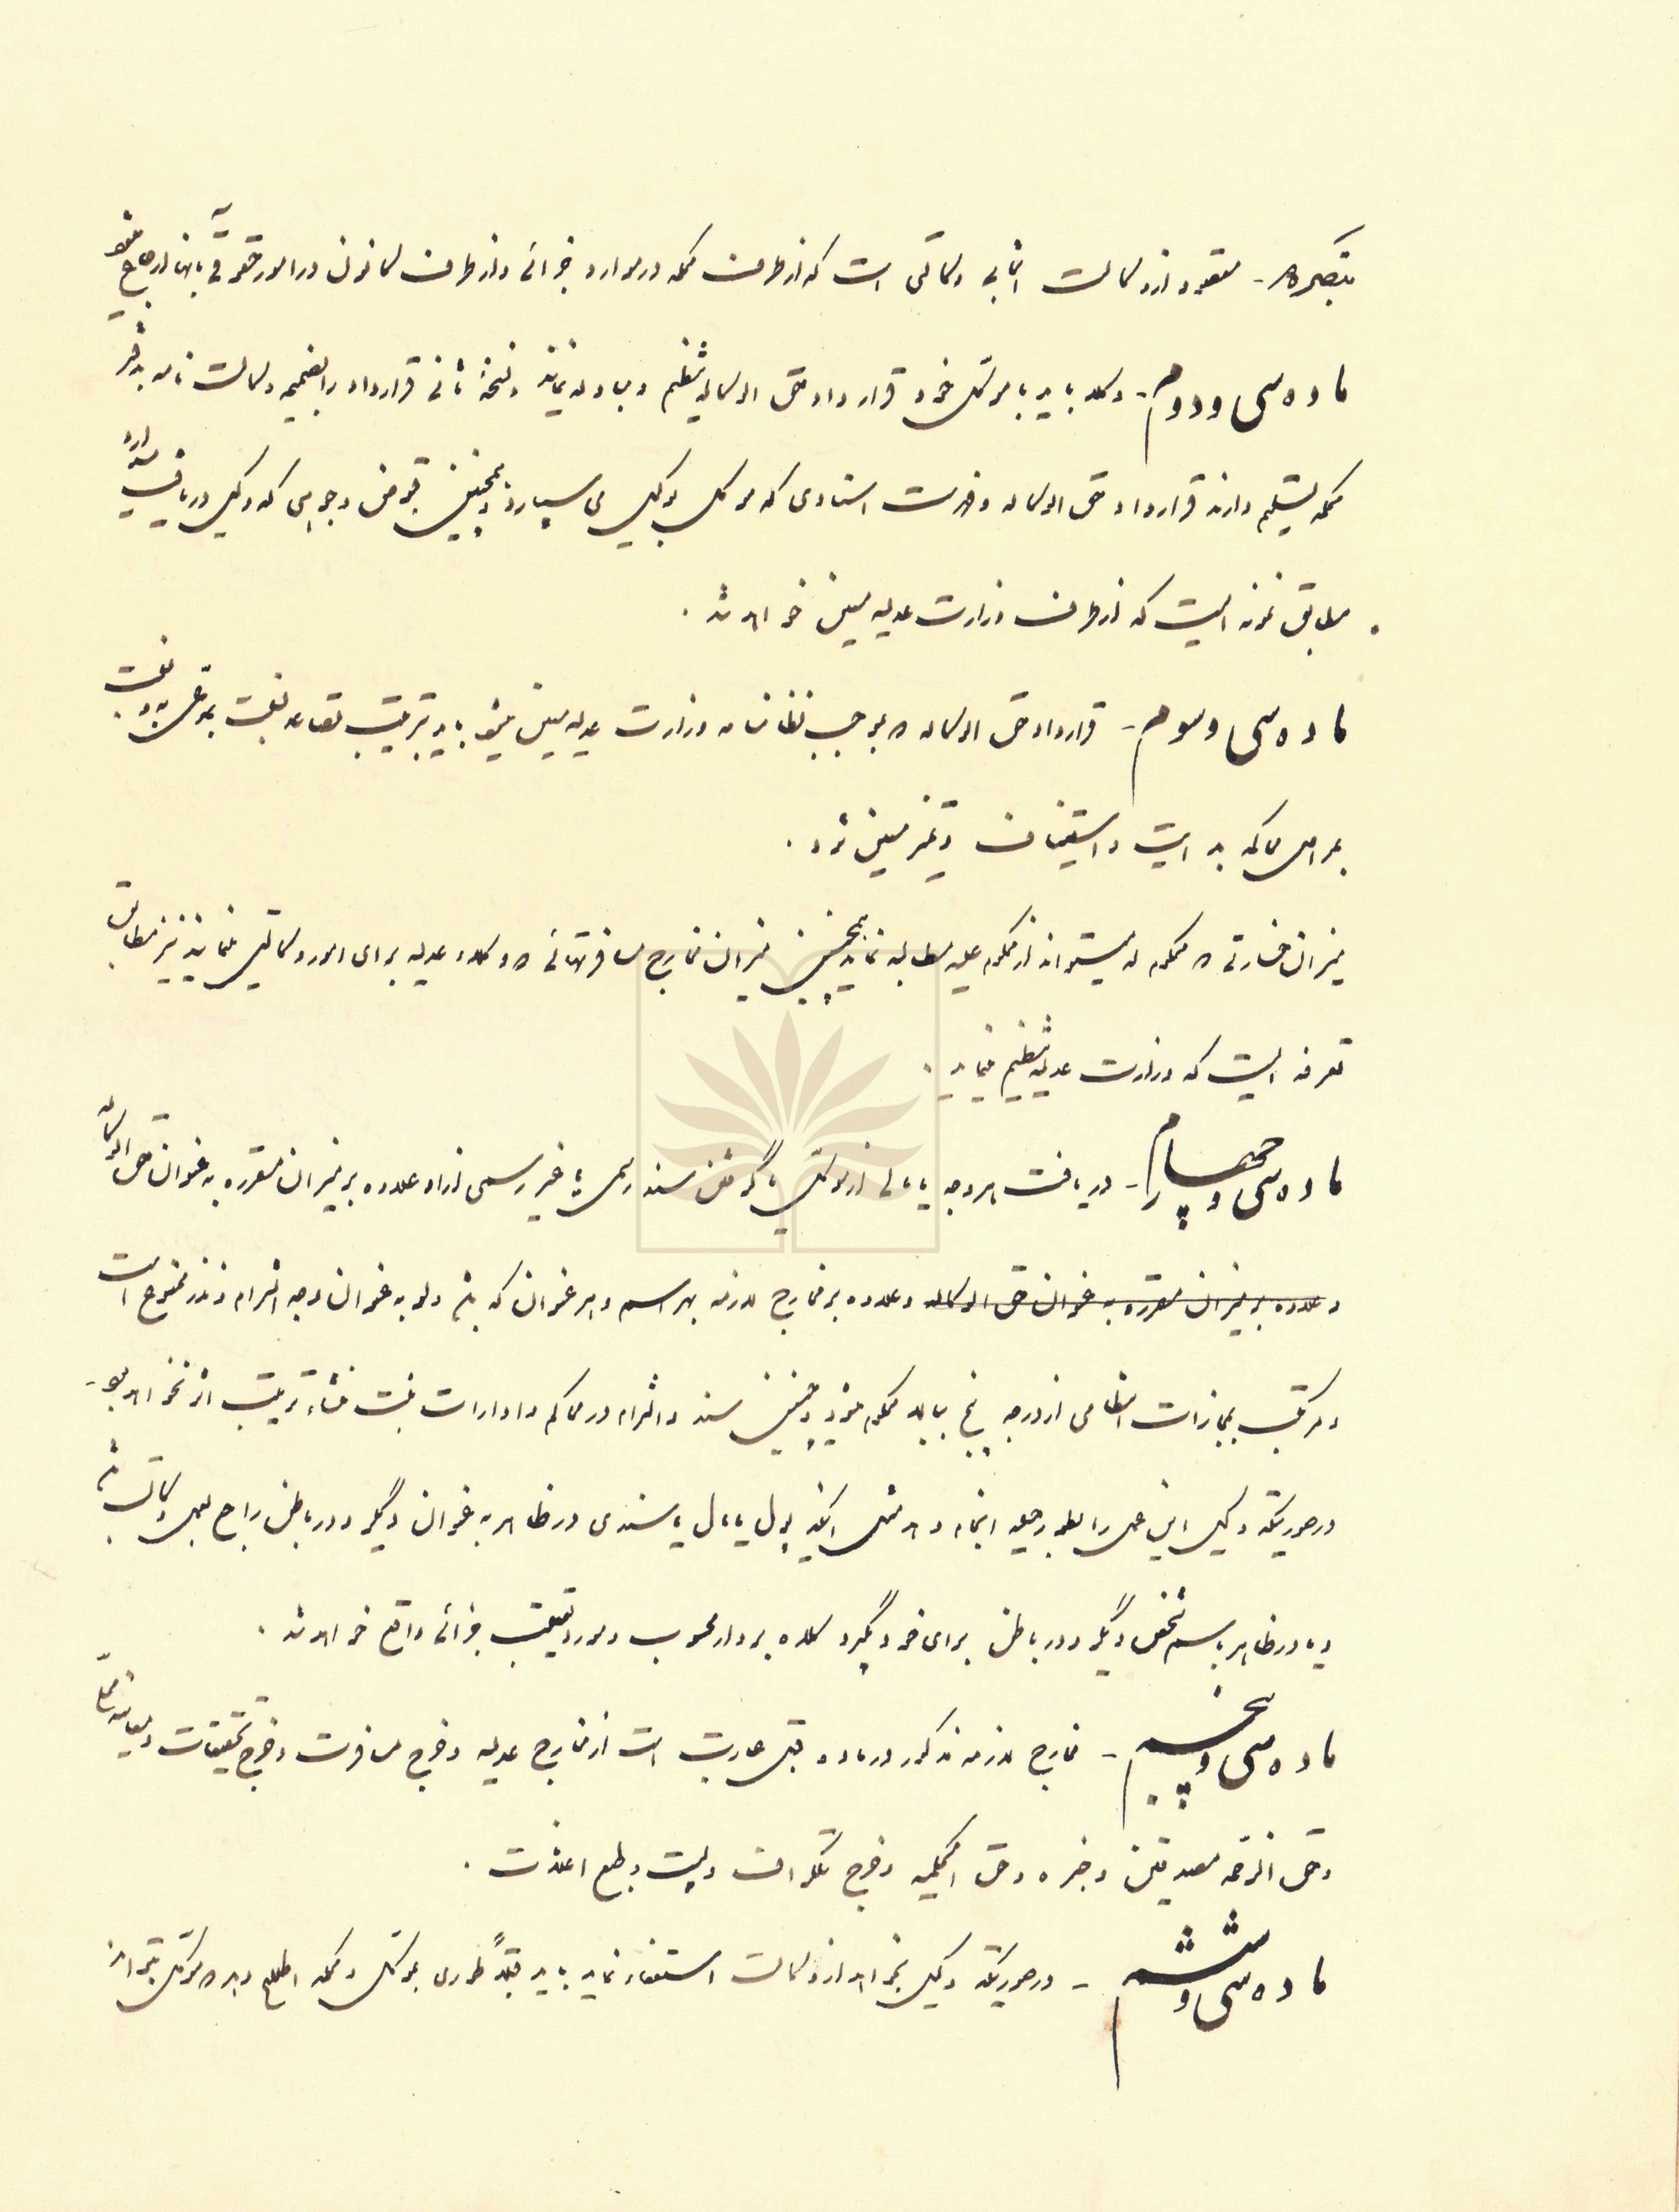 تبصره - مقصود از وکالت انتخابی وکالتی است که از طرف محکمه در موارد جزائی و از طرف کانون در امور حقوقی بآنها ارجاع میشود
ماده سی و دوم - وکلاء باید با موکل خود قرارداد حق الوکاله تنظیم و مبادله نمایند و نسخه ثانی قرارداد را بضمیمه وکالت نامه بدفتر
محکمه تسلیم دارند قرارداد حق الوکاله و فهرست اسنادی که موکل بوکیل می سپارد و همچنین قبوض وجوهی که وکیل دریافت میدارد
مطابق نمونه ایست که از طرف وزارت عدلیه معین خواهد شد .
ماده سی و سوم - قرارداد حق الوکاله که بموجب نظامنامه وزارت عدلیه معین میشود باید بترتیب تصاعد نسبت بمدعی به و نسبت
بمراحل محاکمه بدایت و استیناف و تمیز معین شود .
میزان خسارتی که محکوم له میتواند از محکوم علیه مطالبه نماید و همچنین میزان مخارج مسافرتهائی که وکلاء عدلیه برای امور وکالتی مینمایند نیز مطابق
تعرفه ایست که وزارت عدلیه تنظیم مینماید .
ماده سی و چهارم - دریافت هر وجه یا مالی از موکل یا گرفتن سند رسمی یا غیر رسمی از او علاوه بر میزان مقرره به عنوان حق الوکاله
و علاوه بر میزان مقرره به عنوان حق الوکاله و علاوه بر مخارج لازمه بهر اسم و هر عنوان که باشد ولو به عنوان وجه التزام و نذر ممنوع است
و مرتکب بمجازات انتظامی از درجه پنج ببالا محکوم میشود و چنین سند و التزام در محاکم و ادارات ثبت منشاء ترتیب اثر نخواهد بود -
در صورتیکه وکیل این عمل را بطور حیله انجام دهد مثل اینکه پول یا مال یا سندی در ظاهر به عنوان دیگر و در باطن راجع بعمل وکالت باشد
و یا در ظاهر باسم شخص دیگر و در باطن برای خود بگیرد کلاه بردار محسوب و مورد تعقیب جزائی واقع خواهد شد .
ماده سی و پنجم - مخارج لازمه مذکور در ماده قبل عبارت است از مخارج عدلیه و خرج مسافرت و خرج تحقیقات و معاینه محلی
و حق الزحمه مصدقین و خبره و حق الحکمیه و خرج تلگراف و پست و طبع اعلانات .
ماده سی و ششم - در صورتیکه وکیل بخواهد از وکالت استعفا نماید باید قبلاً طوری بموکل و محکمه اطلاع دهد که موکل بتواند